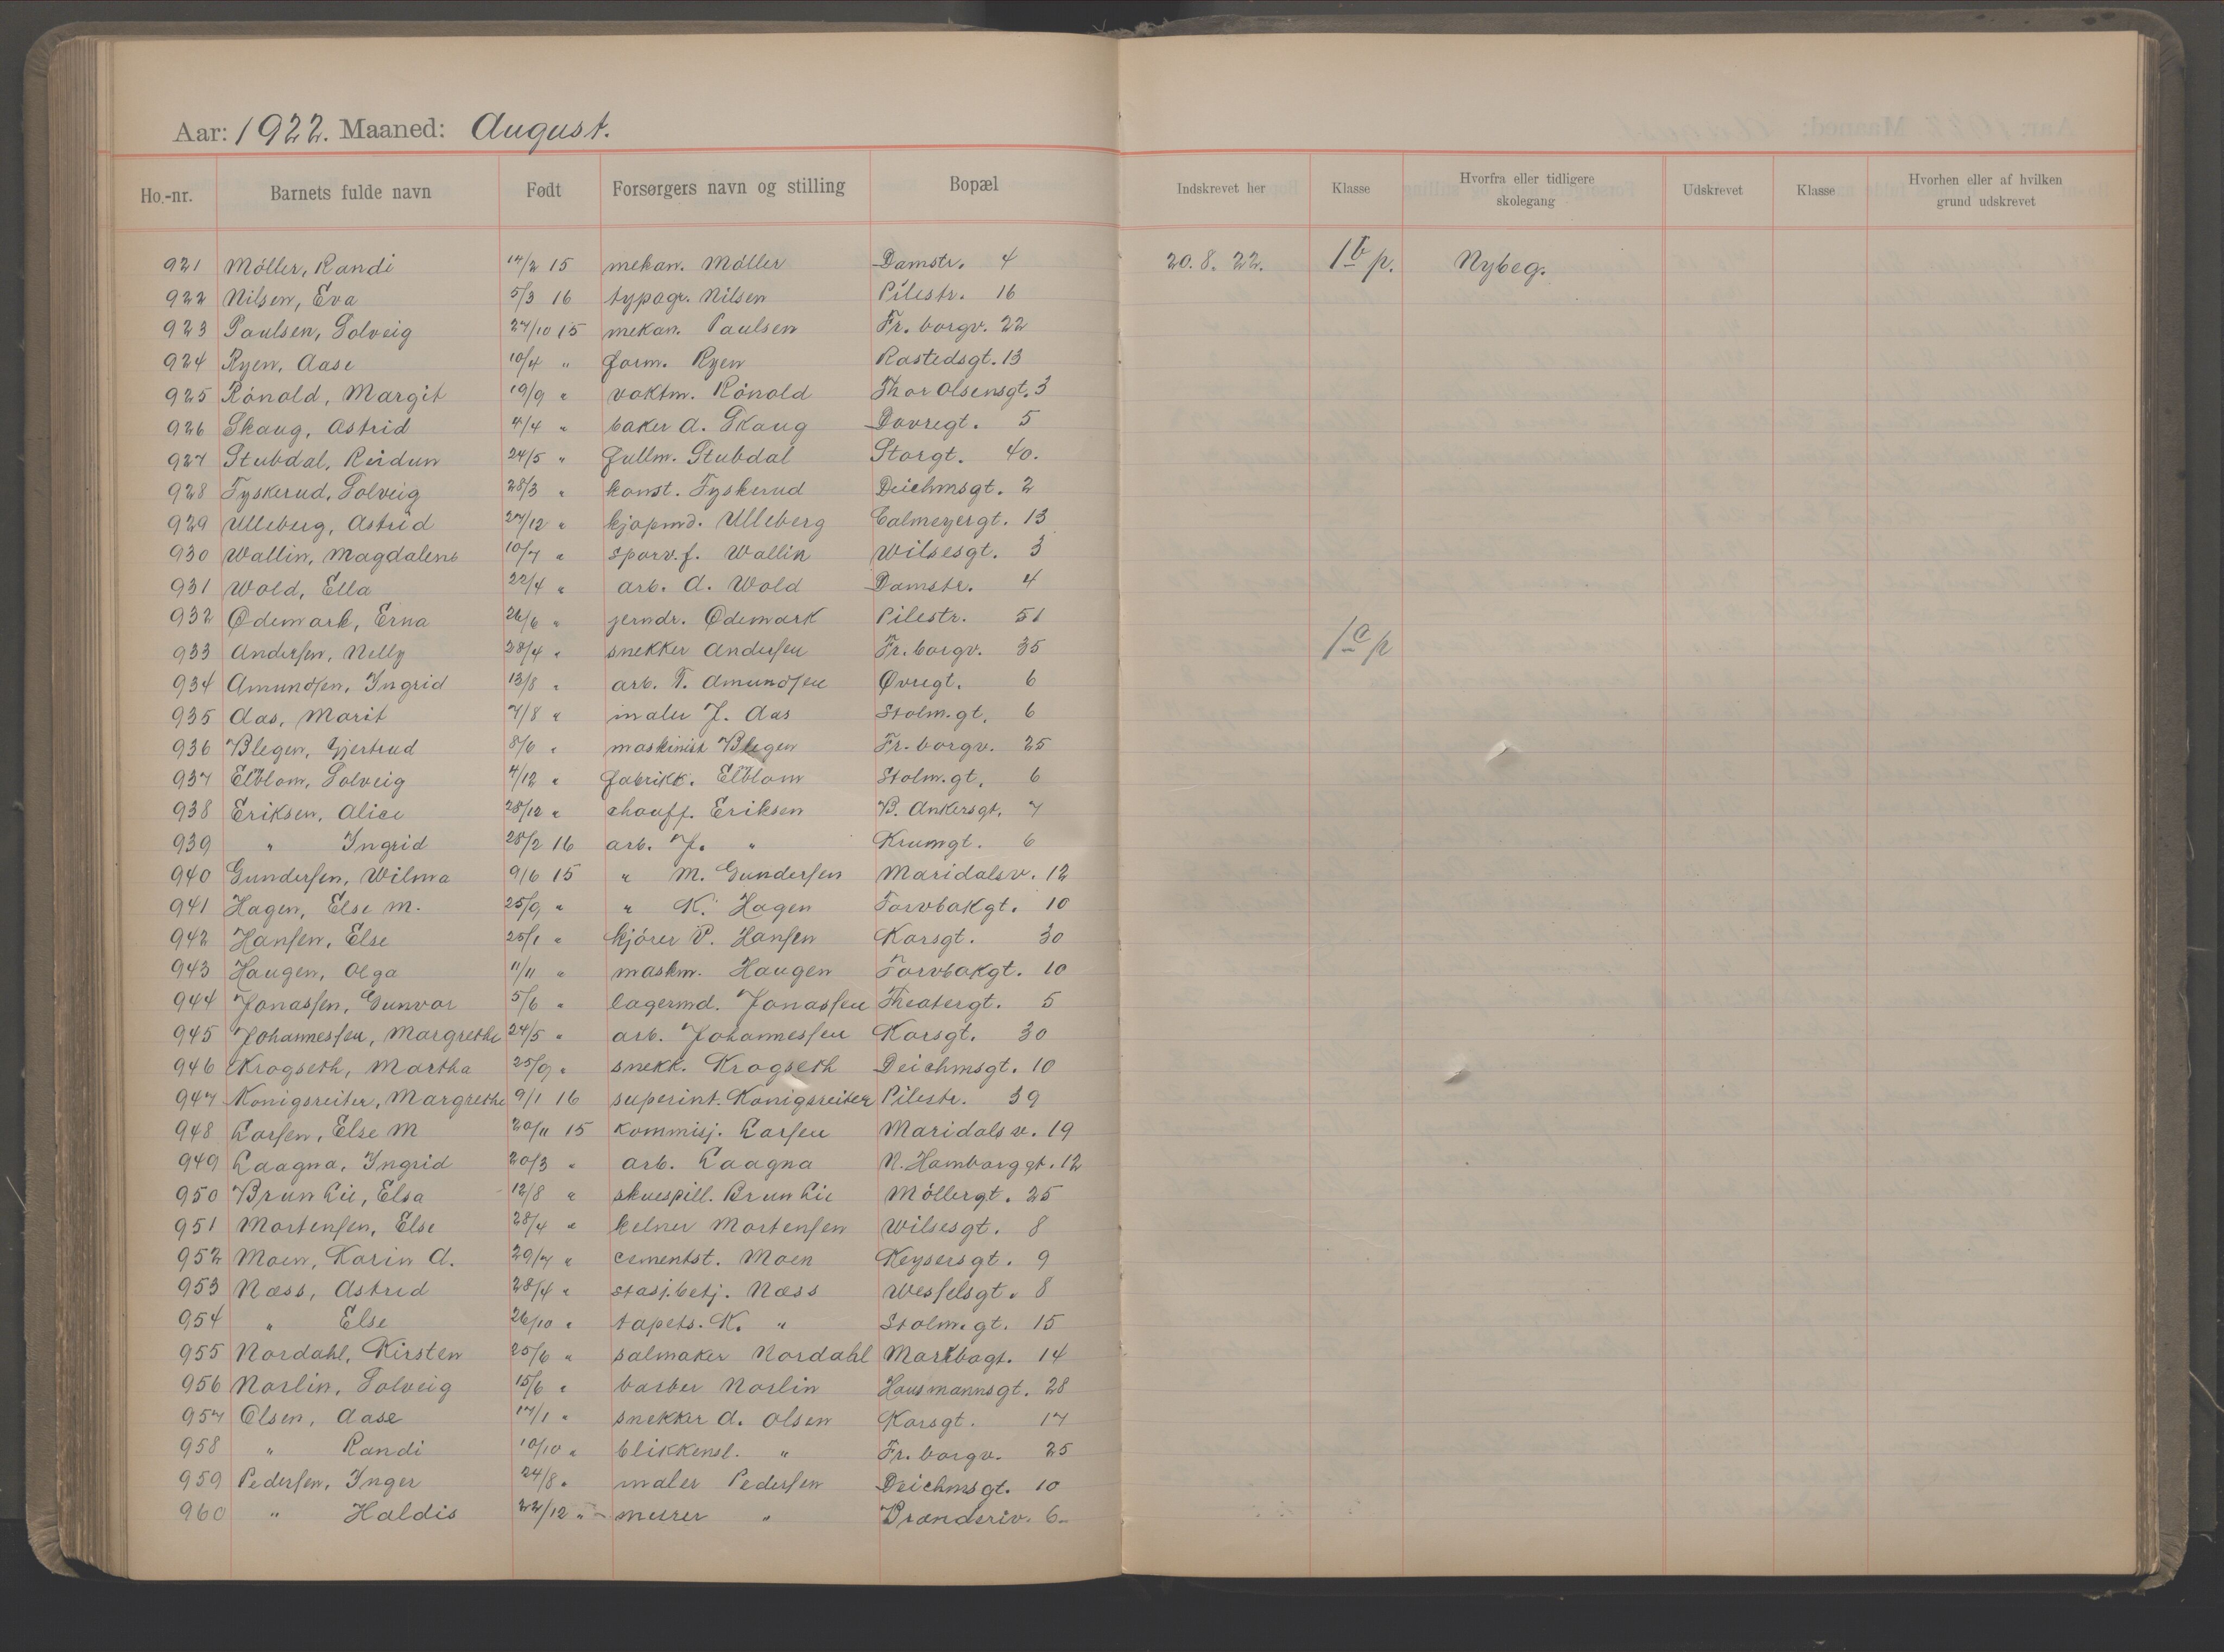 Aar: 1922. Maaned: August.
Ho.-nr. Barnets fulde navn Født Forsørgers navn og stilling Bopæl Indskrevet her Klasse Hvorfra eller tidligere skolegang Udskrevet Klasse Hvorhen eller af hvilken grund udskrevet
921 Möller, Randi 14/2 15 mekan. Möller Damstr. 4 20.8.22. 1b p. Nybeg.
922 Nilsen, Eva 5/3 16 typogr. Nilsen Pilestr. 16
923 Paulsen, Solveig 27/10 15 mekan. Paulsen Fr. borgv. 22
924 Ryen, Aase 10/4 " form. Ryen Rastedsgt. 13
925 Rönold, Margit 19/9 " vaktm. Rönold Thor Olsensgt. 3
926 Skaug, Astrid 4/4 " baker A. Skaug Dovregt. 5
927 Stubdal, Reidun 24/5 " fullm. Stubdal Storgt. 40.
928 Fyskerud, Solveig 28/3 " konst. Fyskerud Deichmsgt. 2
929 Ulleberg, Astrid 27/12 " kjøpmd. Ulleberg Calmeyergt. 13
930 Wallin, Magdalene 10/7 " sporv.f. Wallin Wilsesgt. 3
931 Wold, Ella 22/4 " arb. A. Wold Damstr. 4
932 Ödemark, Erna 26/6 " jerndr. Ödemark Pilestr. 51
933 Andersen, Nelly 28/4 " snekker Andersen Fr. borgv. 35 1a p
934 Amundsen, Ingrid 13/8 " arb. T. Amundsen Øvregt. 6
935 Aas, Marit 7/8 " maler J. Aas Stolm.gt. 6
936 Blegen, Gjertrud 8/6 " maskinist Blegen Fr. borgv. 25
937 Elblom, Solveig 4/12 " fabrikk. Elblom Stolm.gt. 6
938 Eriksen, Alice 28/12 " chauff. Eriksen B. Ankersgt. 7
939 " Ingrid 28/2 16 arb. J. " Krumgt. 6
940 Gundersen, Wilma 9/6 15 " M. Gundersen Maridalsv. 12
941 Hagen, Else M. 25/9 " " K. Hagen Torvbakgt. 10
942 Hansen, Else 25/1 " kjörer P. Hansen Korsgt. 30
943 Haugen, Olga 11/11 " maskm. Haugen Torvbakgt. 10
944 Jonassen, Gunvor 5/6 " lagermd. Jonassen Theatergt. 5
945 Johannessen, Margrethe 24/5 " arb. Johannessen Korsgt. 30
946 Krogseth, Martha 25/9 " snekk. Krogseth Deichmsgt. 10
947 Konigsreiter, Margrethe 9/1 16 superint. Konigsreiter Pilestr. 39
948 Larsen, Else M 20/11 15 kommisj. Larsen Maridalsv. 19
949 Laagna, Ingrid 20/3 " arb. Laagna N. Hamborggt. 12
950 Brun Lie, Elsa 12/8 " skuespill. Brun Lie Möllergt. 25
951 Mortensen, Else 28/4 " kelner Mortensen Wilsesgt. 8
952 Moen, Karin A. 29/7 " cementst. Moen Keysersgt. 9
953 Næss, Astrid 28/4 " stasj.betj. Næss Wesselsgt. 8
954 " Else 26/10 " tapets. K. " Stolm.gt. 15
955 Nordahl, Kirsten 25/6 " salmaker Nordahl Markbogt. 14
956 Norlin, Solveig 15/6 " barber Norlin Hausmannsgt. 28
957 Olsen, Aase 17/1 " snekker A. Olsen Korsgt. 17
958 " Randi 10/10 " blikkensl. " Fr. borgv. 25
959 Pedersen, Inger 24/8 " maler Pedersen Deichmsgt. 10
960 " Haldis 22/12 " murer " Brænderiv. 6